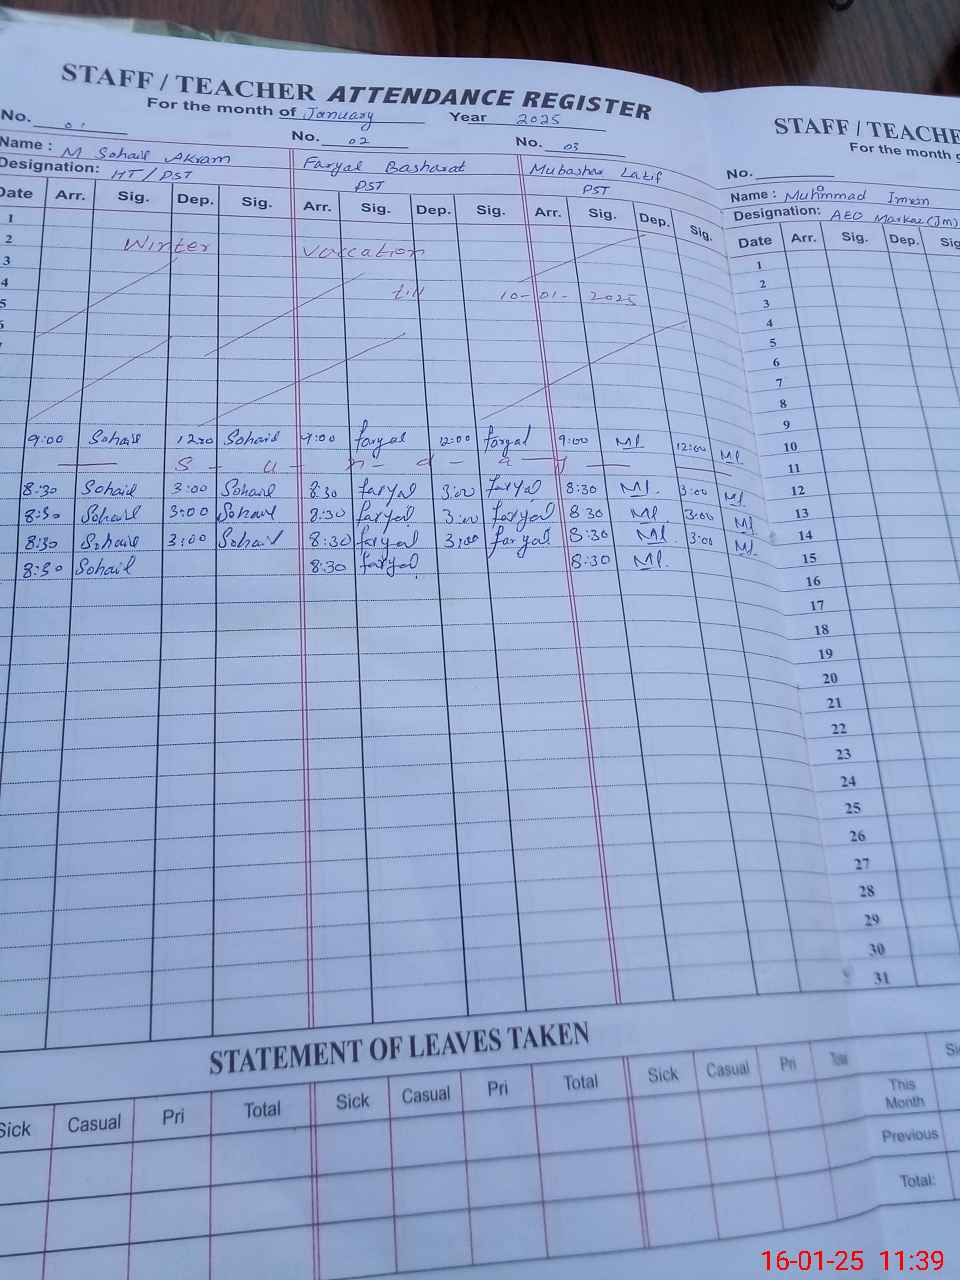 STAFF / TEACHER ATTENDANCE REGISTER
For the month of January Year 2025
No. 01 No. 02 No. 03
Name : M Sohail Akram Faryal Basharat Mubashar Latif
Designation: HT / PST PST PST
Date Arr. Sig. Dep. Sig. Arr. Sig. Dep. Sig. Arr. Sig. Dep. Sig.
1
2 Winter Vaccation
3
4 till 10-01-2025
5
6
9:00 Sohail 12:00 Sohail 9:00 faryal 12:00 faryal 9:00 Ml 12:00 Ml
S - u - n - d - a - y
8:30 Sohail 3:00 Sohail 8:30 faryal 3:00 faryal 8:30 Ml. 3:00 Ml
8:30 Sohail 3:00 Sohail 8:30 faryal 3:00 faryal 8 30 Ml 3:00 Ml
8:30 Sohail 3:00 Sohail 8:30 faryal 3:00 faryal 8:30 Ml. 3:00 Ml.
8:30 Sohail 8:30 faryal 8:30 Ml.
STATEMENT OF LEAVES TAKEN
Sick Casual Pri Total Sick Casual Pri Total Sick Casual Pri Total
STAFF / TEACHE
For the month
No.
Name : Muhmmad Imran
Designation: AEO Markaz (Jm)
Date Arr. Sig. Dep. Sig
1
2
3
4
5
6
7
8
9
10
11
12
13
14
15
16
17
18
19
20
21
22
23
24
25
26
27
28
29
30
31
This Month
Previous
Total:
16-01-25 11:39